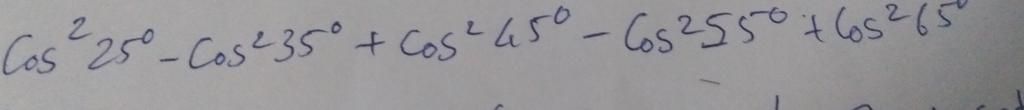 Cos²25° - Cos²35° + Cos²45° - Cos²55° + Cos²65°